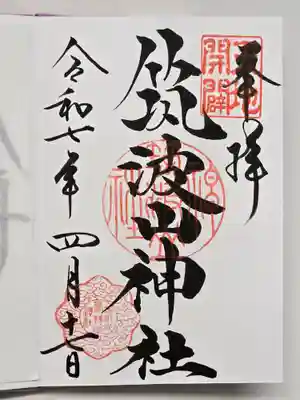 奉拝
天地開闢
筑波山神社
令和七年四月十七日